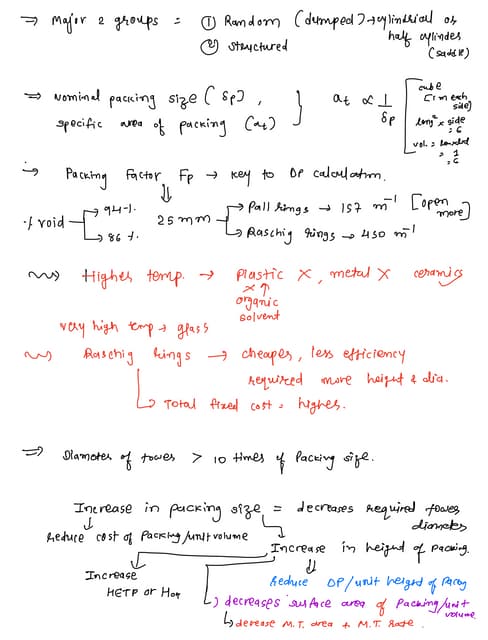 ⇒ Major 2 groups = ① Random (dumped) → cylindrical or half cylinder (saddle)
② Structured
⇒ Nominal packing size (δp), specific area of packing (at) } at ∝ 1/δp
cube
(1m each side)
side
= 6
vol. =
= 1
⇒ Packing Factor Fp → key to DP calculation.
% void → 94%. → 86 %.
25 mm → Pall rings → 157 m⁻¹ [open more]
→ Raschig rings → 450 m⁻¹
Higher temp. → Plastic X, metal X ceramics
X ↑
organic
solvent
very high temp → glass
Raschig rings → cheaper, less efficiency
required more height & dia.
↳ Total fixed cost = higher.
⇒ Diameter of tower > 10 times of Packing size.
Increase in packing size = decreases required tower diameter
Reduce cost of Packing/unit volume
Increase in height of packing.
Increase
HETP or HOG
Reduce DP/unit height of
↳ decreases surface area of Packing/unit volume
↳ decrease M.T. area & M.T. Rate.